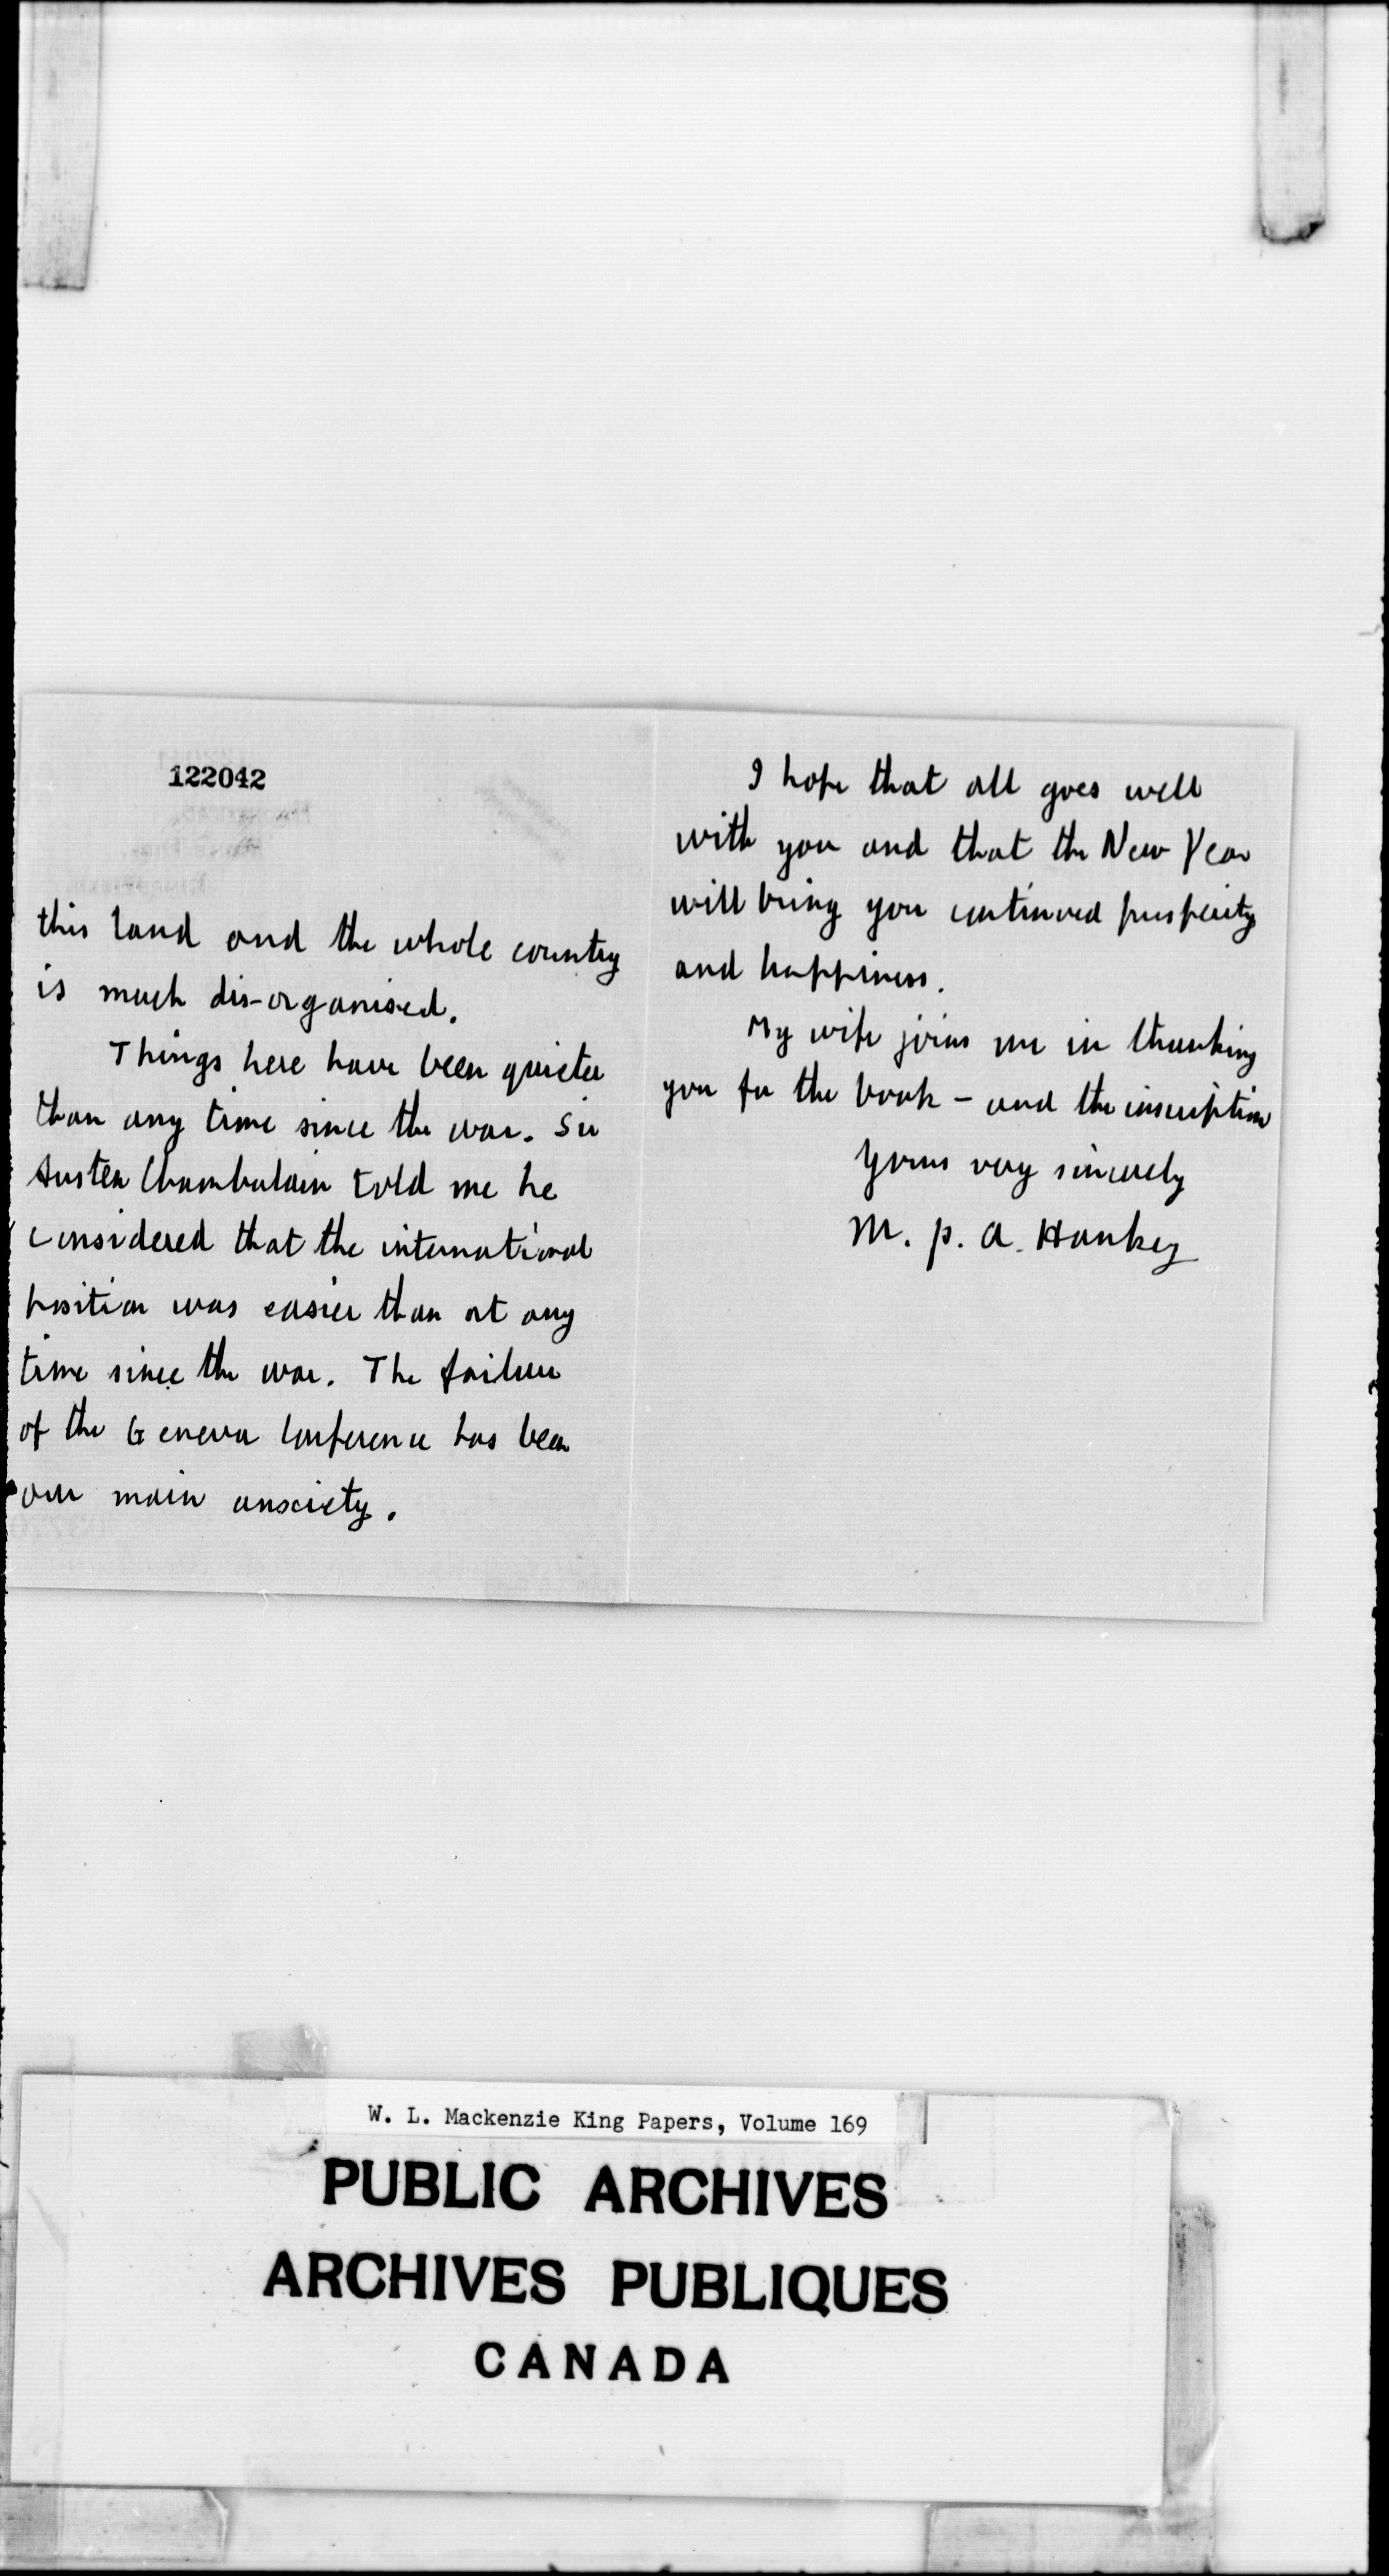 122042
this land and the whole country
is much dis-organised.
Things here have been quieter
than any time since the war. Sir
Austen Chamberlain told me he
considered that the international
position was easier than at any
time since the war. The failure
of the Geneva Conference has been
our main anxiety.
I hope that all goes well
with you and that the New Year
will bring you continued prosperity
and happiness.
My wife joins me in thanking
you for the book – and the inscription
Yours very sincerely
M. P. A. Hankey
W. L. Mackenzie King Papers, Volume 169
PUBLIC ARCHIVES
ARCHIVES PUBLIQUES
CANADA